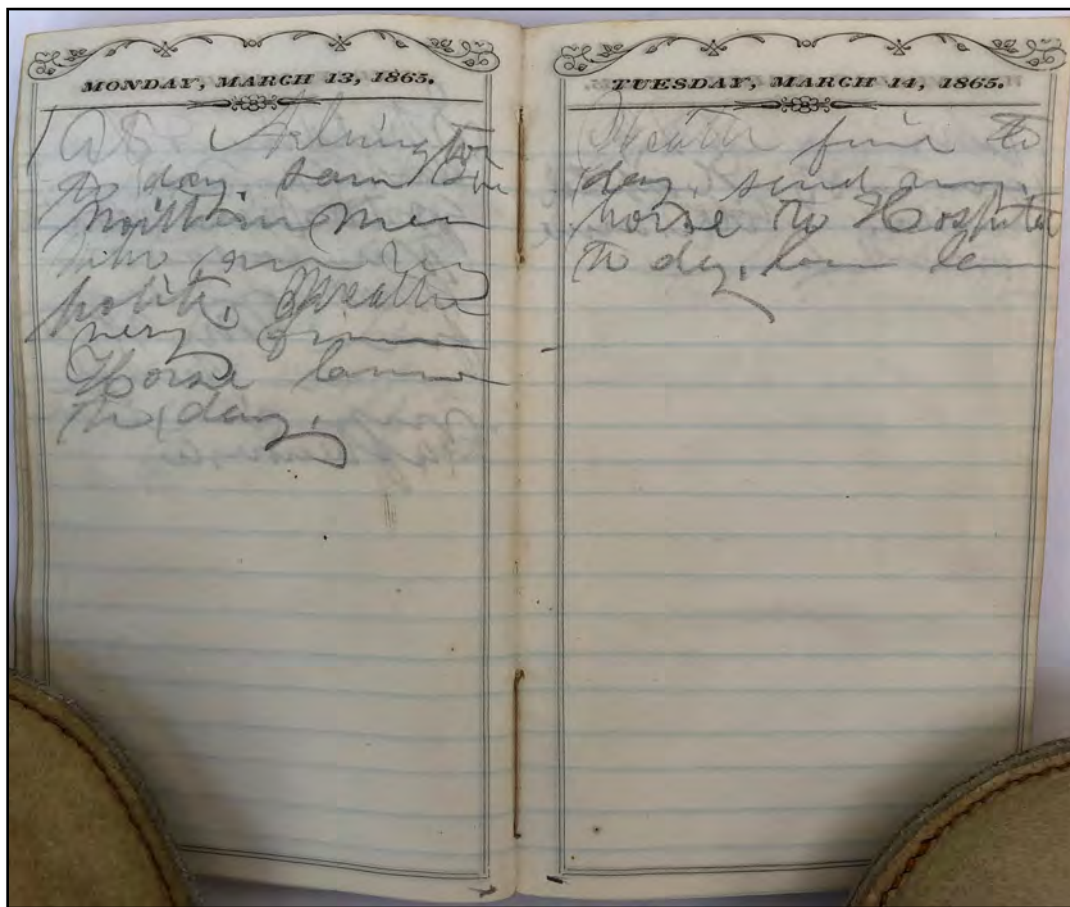 MONDAY, MARCH 13, 1865.
At Arlington
to day, saw Som
Northern men
who are very
polite, Weather
very fine
Horse lame
to day.
TUESDAY, MARCH 14, 1865.
Weather fine to
day, send my
horse to Hospital
to day, lame